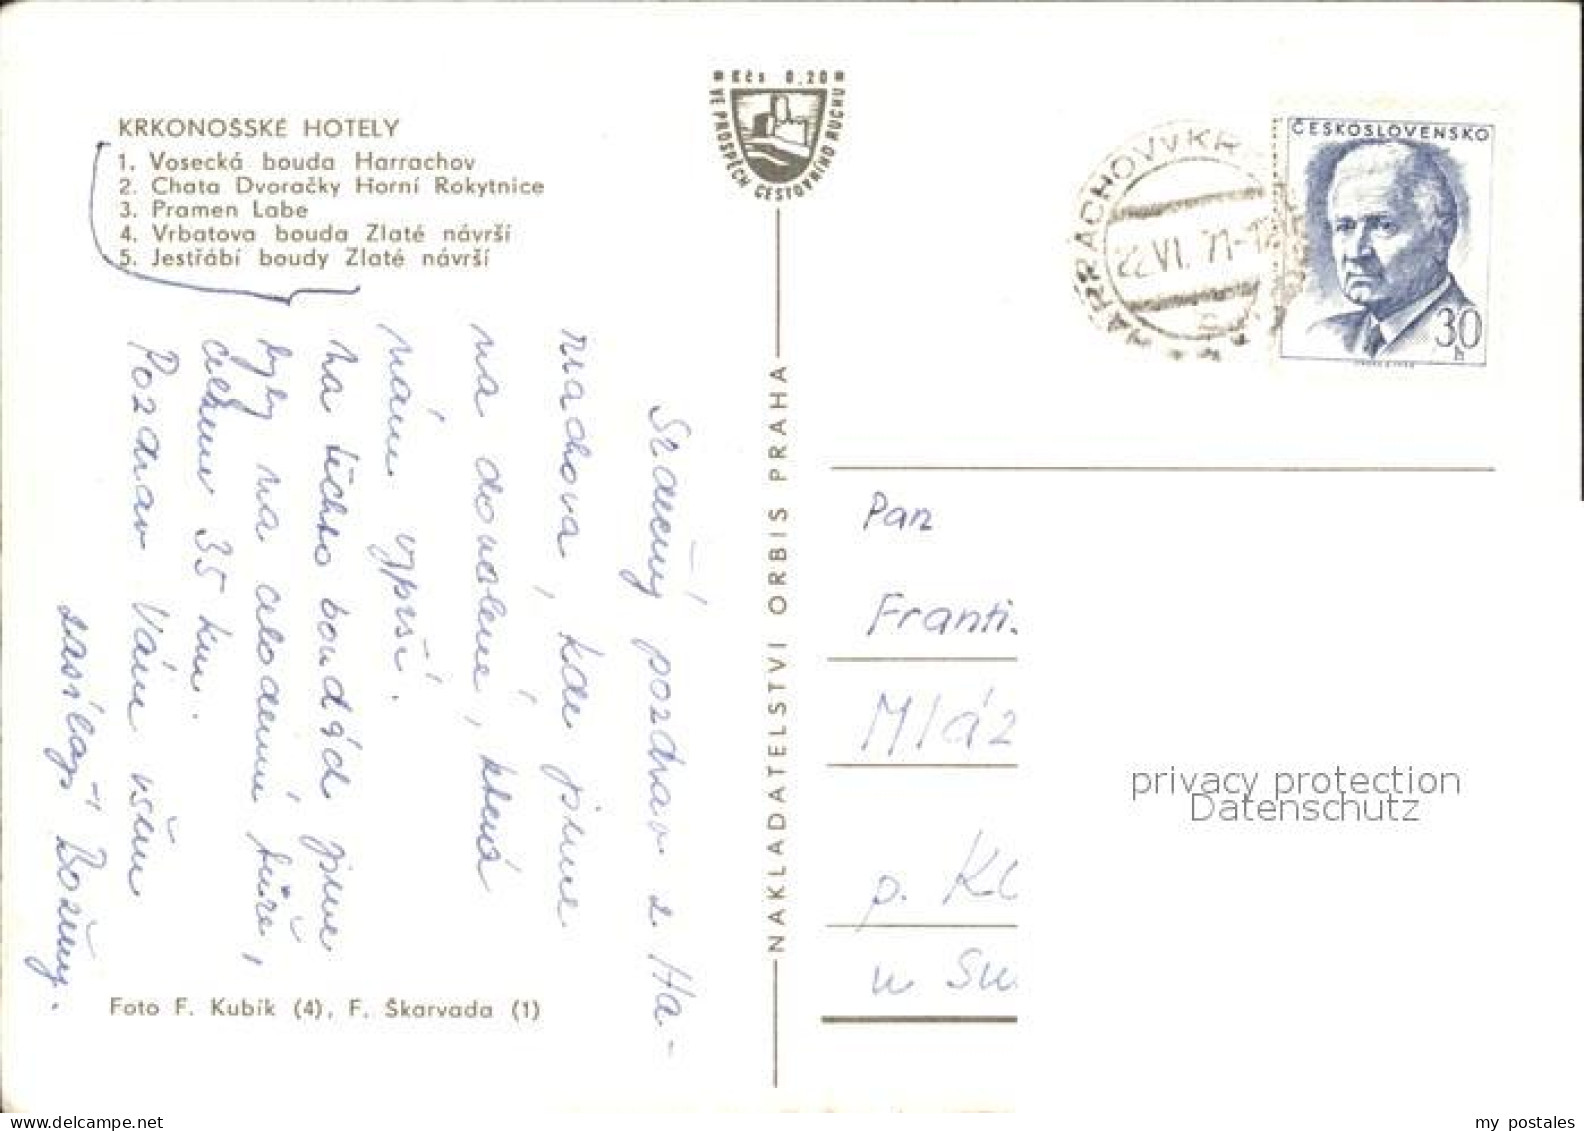 Kčs 0,20
VE PROSPĚCH CESTOVNÍHO RUCHU
KRKONOŠSKÉ HOTELY
1. Vosecká bouda Harrachov
2. Chata Dvoračky Horní Rokytnice
3. Pramen Labe
4. Vrbatova bouda Zlaté návrší
5. Jestřábí boudy Zlaté návrší
Srdečný pozdrav z Ha-
rrachova, kde jsme
na dovolené, která
nám vyprší.
Na těchto boudách jsme
byly na celodenní túře,
celkem 35 km.
Pozdrav Vám všem
zasílají Boženy.
Foto F. Kubík (4), F. Škarvada (1)
NAKLADATELSTVÍ ORBIS PRAHA
HARRACHOV V KR
22.VI.71-1
ČESKOSLOVENSKO
30
h
Pan
Franti
Mláz
p. Kl
u Su
privacy protection
Datenschutz
my postales